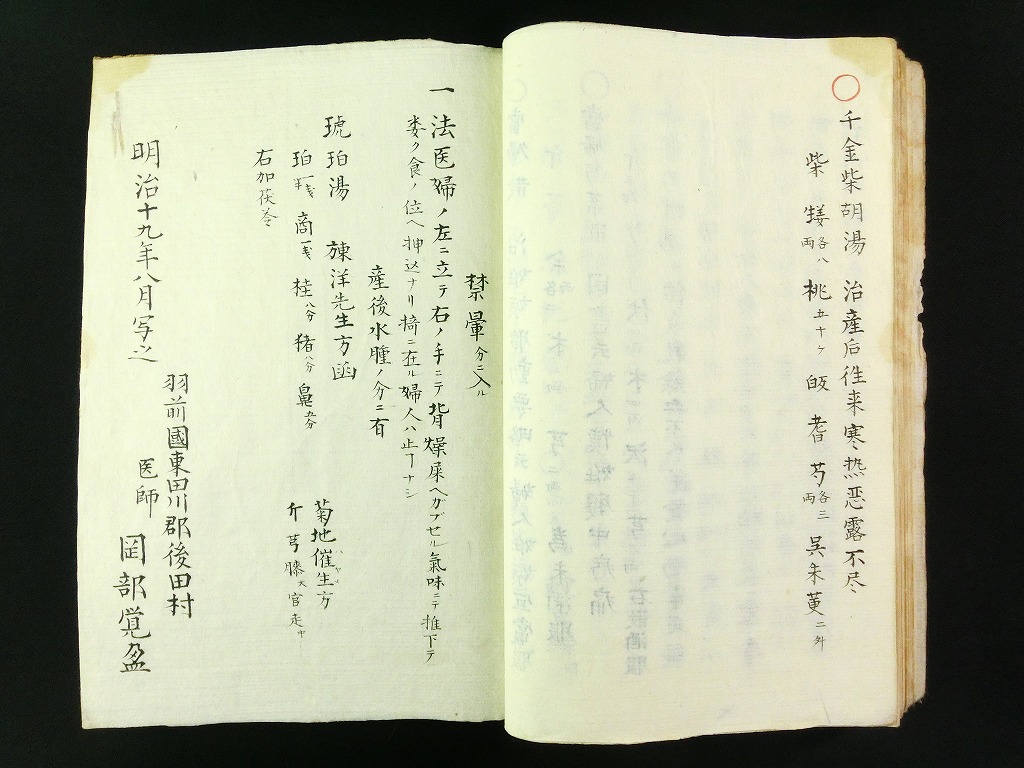 ○千金柴胡湯 治産后往来寒热恶露不尽
柴 各八両 桃五十ケ 芍各三両 呉朱萸二升
禁暈分ニ入ル
一法医婦ノ左ニ立テ右ノ手ニテ背燥屎ヘカブセル氣味ニテ推下テ
食ノ位ヘ押込ナリ椅ニ在ル婦人ハ止ナシ
産後水腫ノ分ニ有
琥珀湯 洋先生方函
珀 商 桂八分 猪八分
右加茯苓
菊地催生方
芎 膝 官
明治十九年八月写之
羽前國東田川郡後田村
医師 岡部覚盈